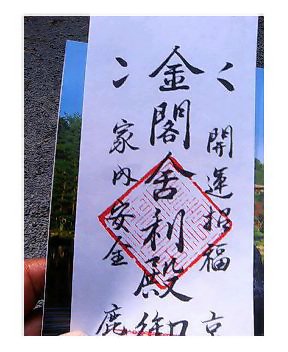 開運招福 京
金閣舎利殿御
家内安全 鹿